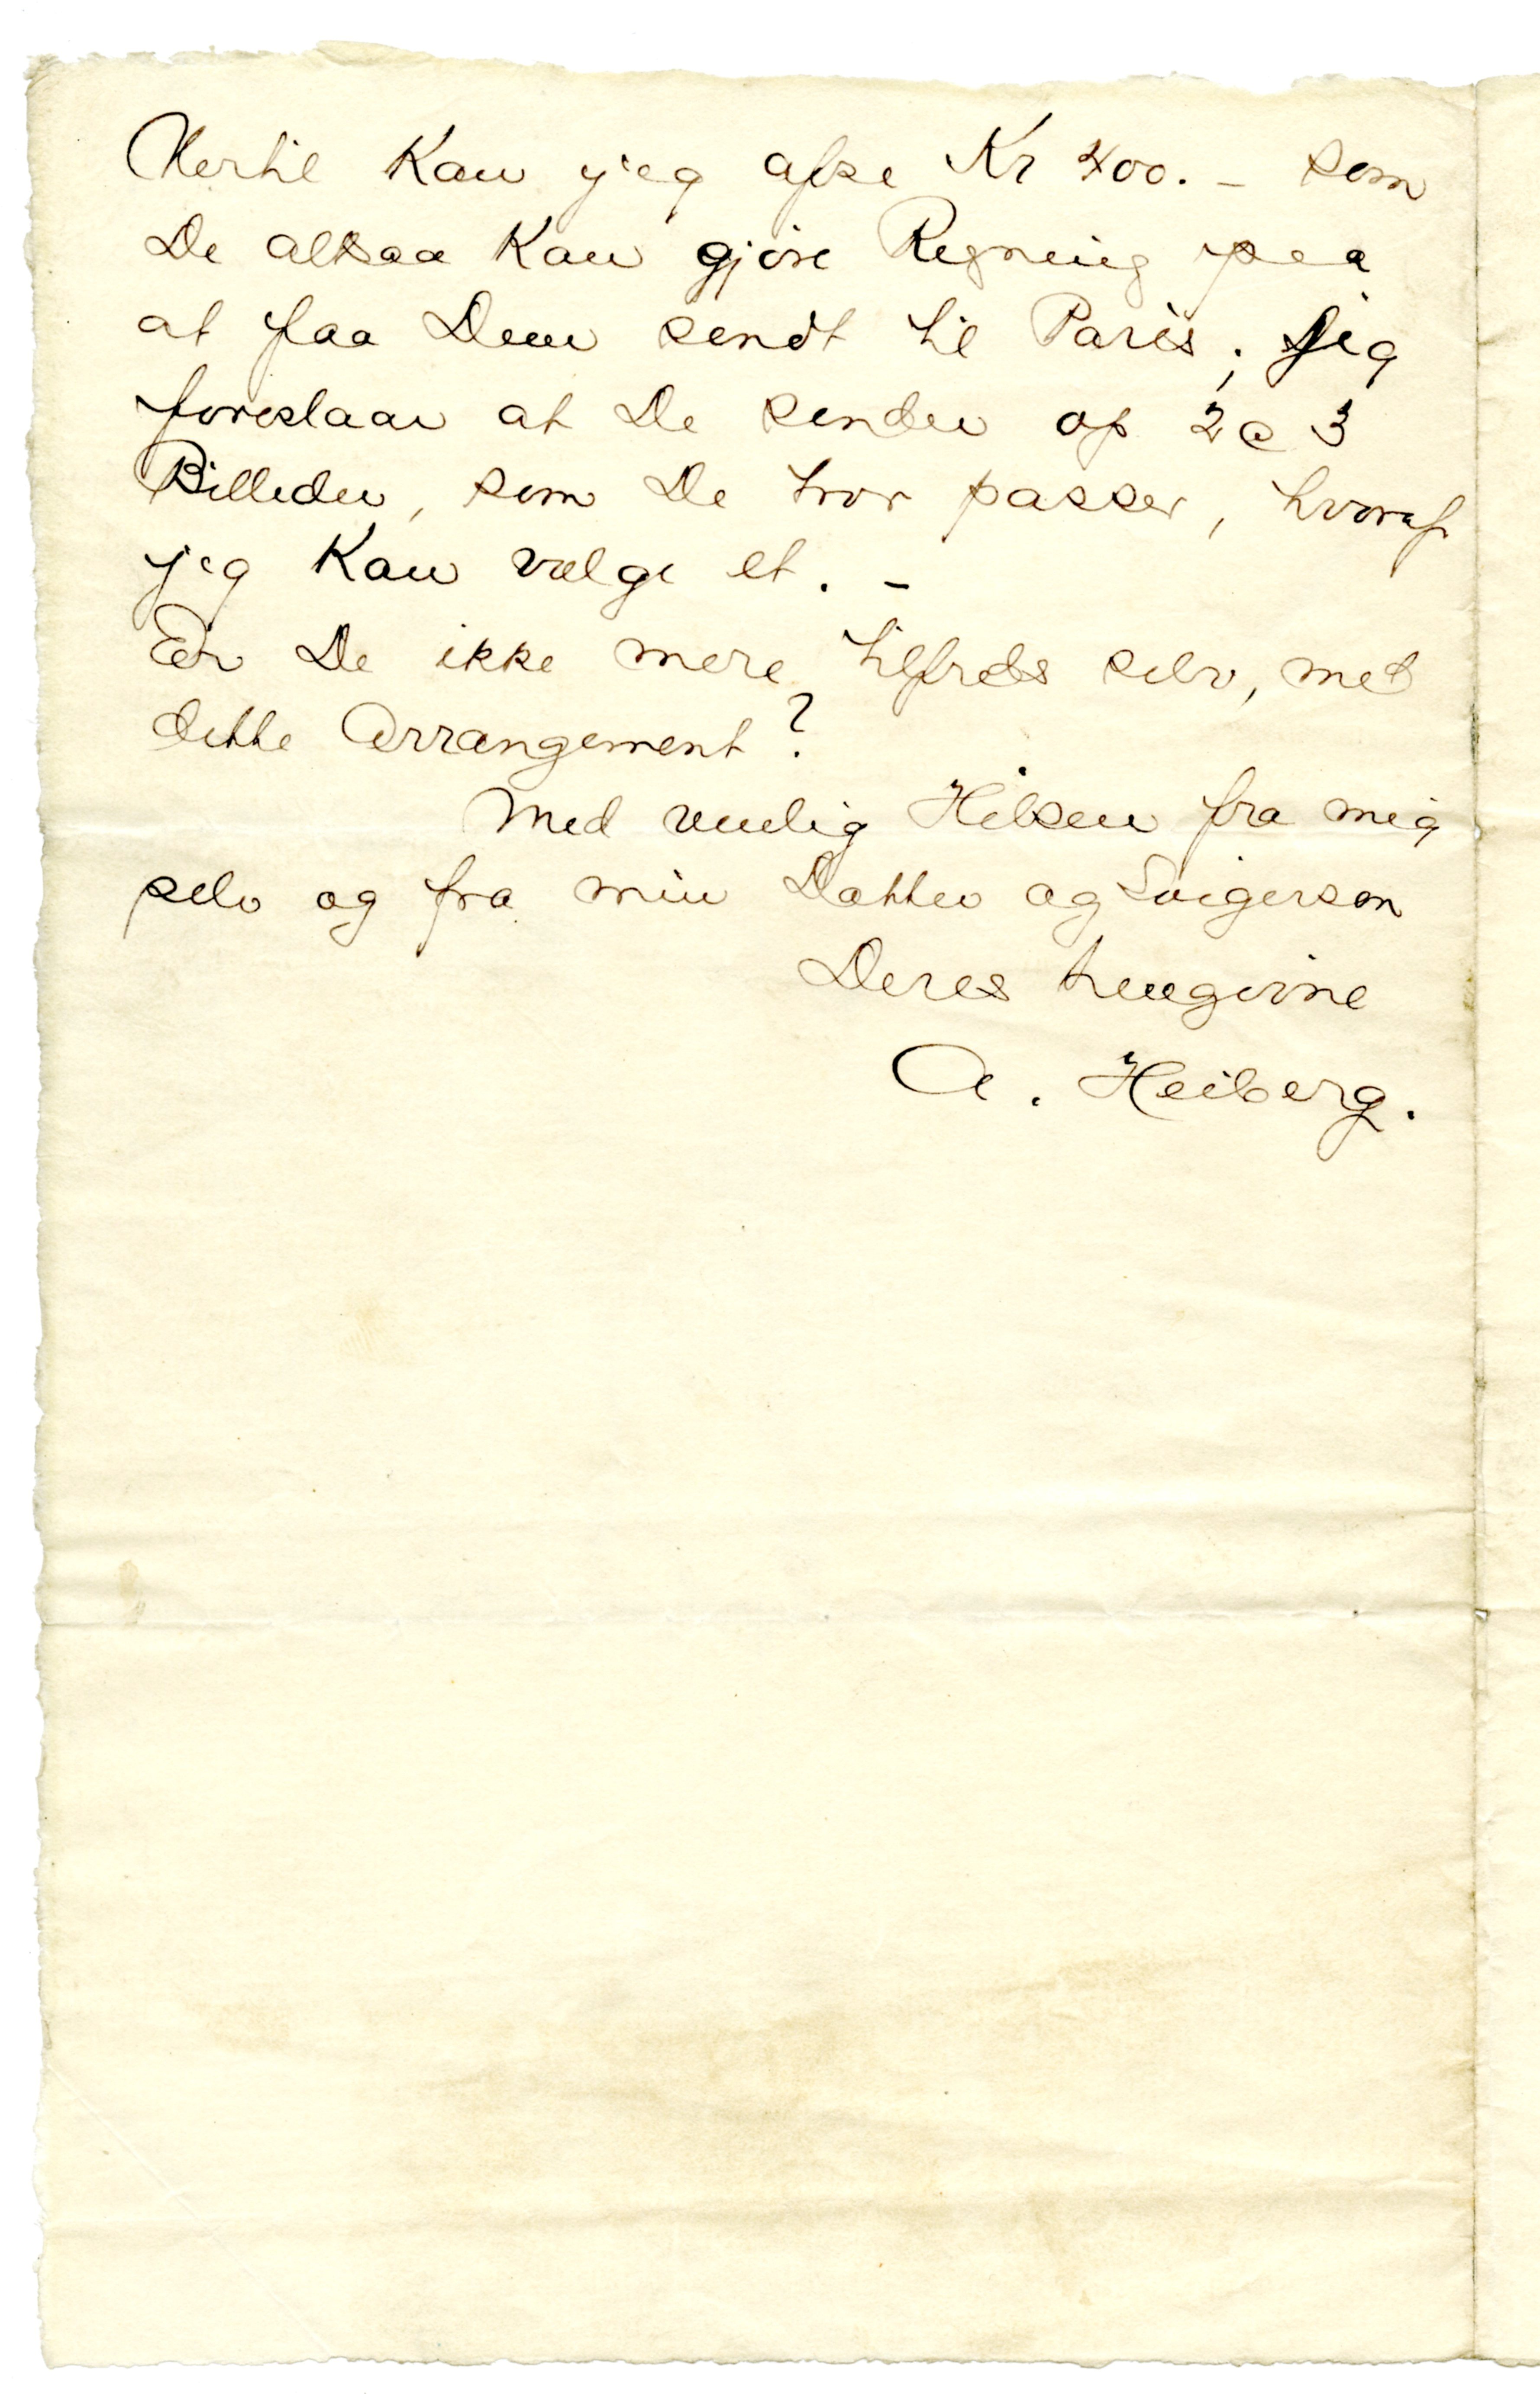 Hertil kan jeg afse Kr 400.- som
De altsaa kan gjöre Regning paa
at faa Dem sendt til Paris; Jeg
foreslaar at De sender op 2 a 3
Billeder, som De tror passer, hvoraf
jeg kan vælge et. -
Er De ikke mere tilfreds selv, med
dette Arrangement?
Med venlig Hilsen fra mig
selv og fra min Datter og Svigersön
Deres hengivne
A. Heiberg.